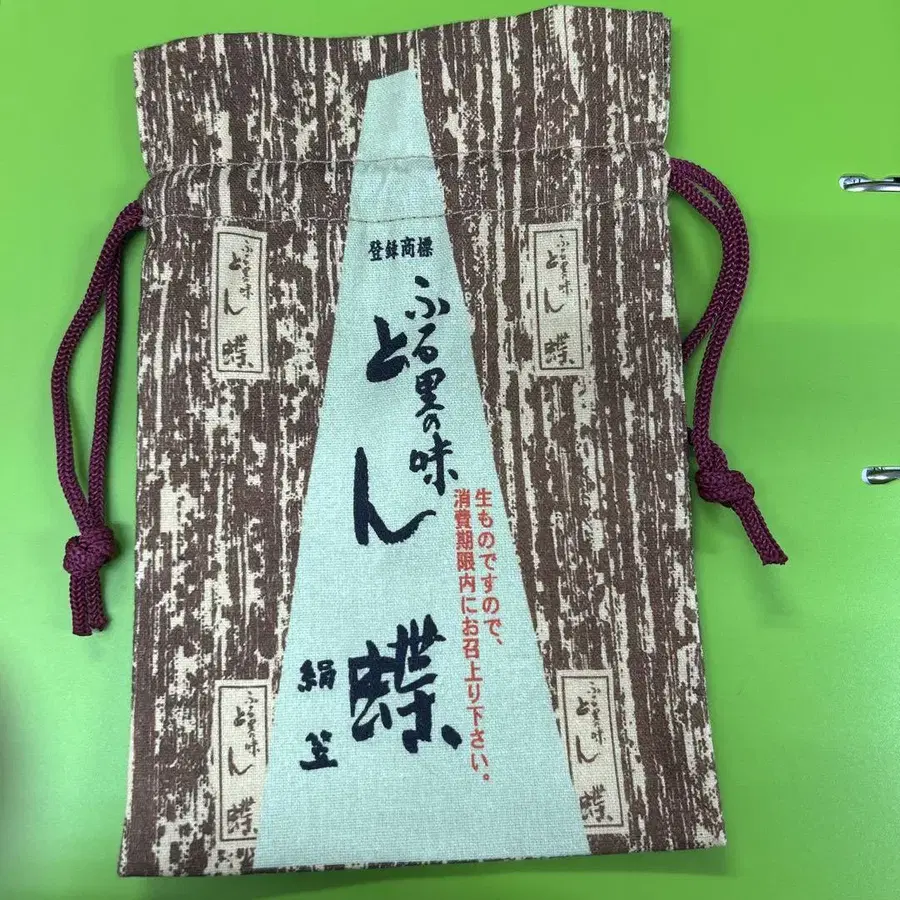 登録商標
ふる里の味
とん蝶
絹笠
生ものですので、
消費期限内にお召上り下さい。
ふる里の味
とん蝶
ふる里の味
とん蝶
ふる里の味
とん蝶
ふる里の味
とん蝶